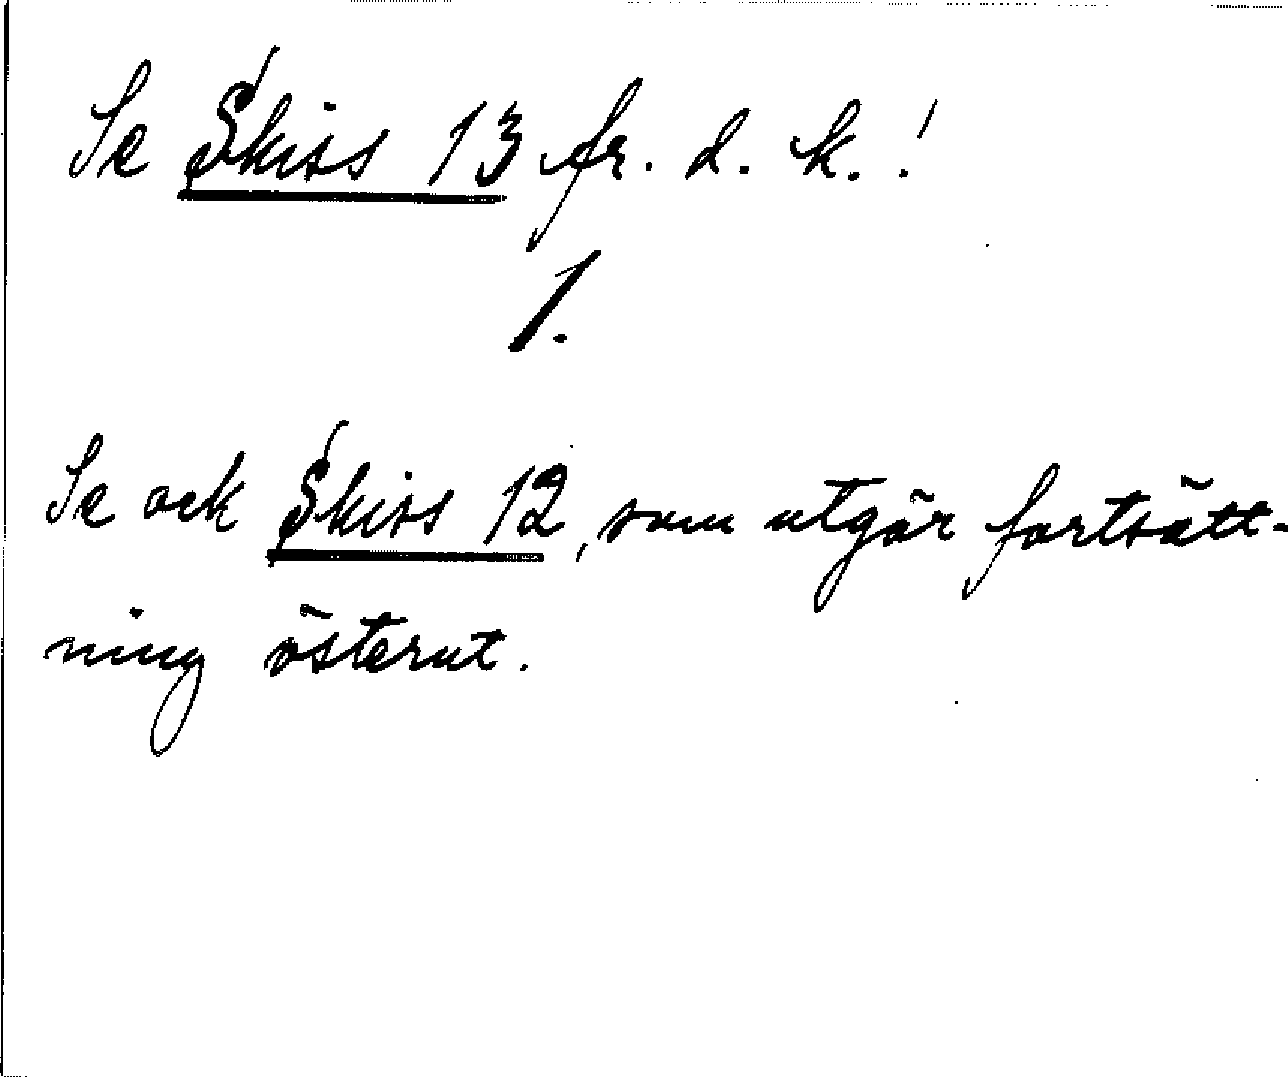 Se Skiss 13 fr. d. k.!
1.
Se ock Skiss 12, som utgör fortsätt-
ning österut.